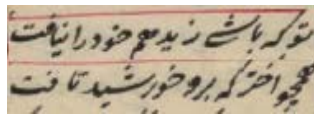 تو که باشے زید هم خود را نیافت
همچو اختر که برو خورشید تافت